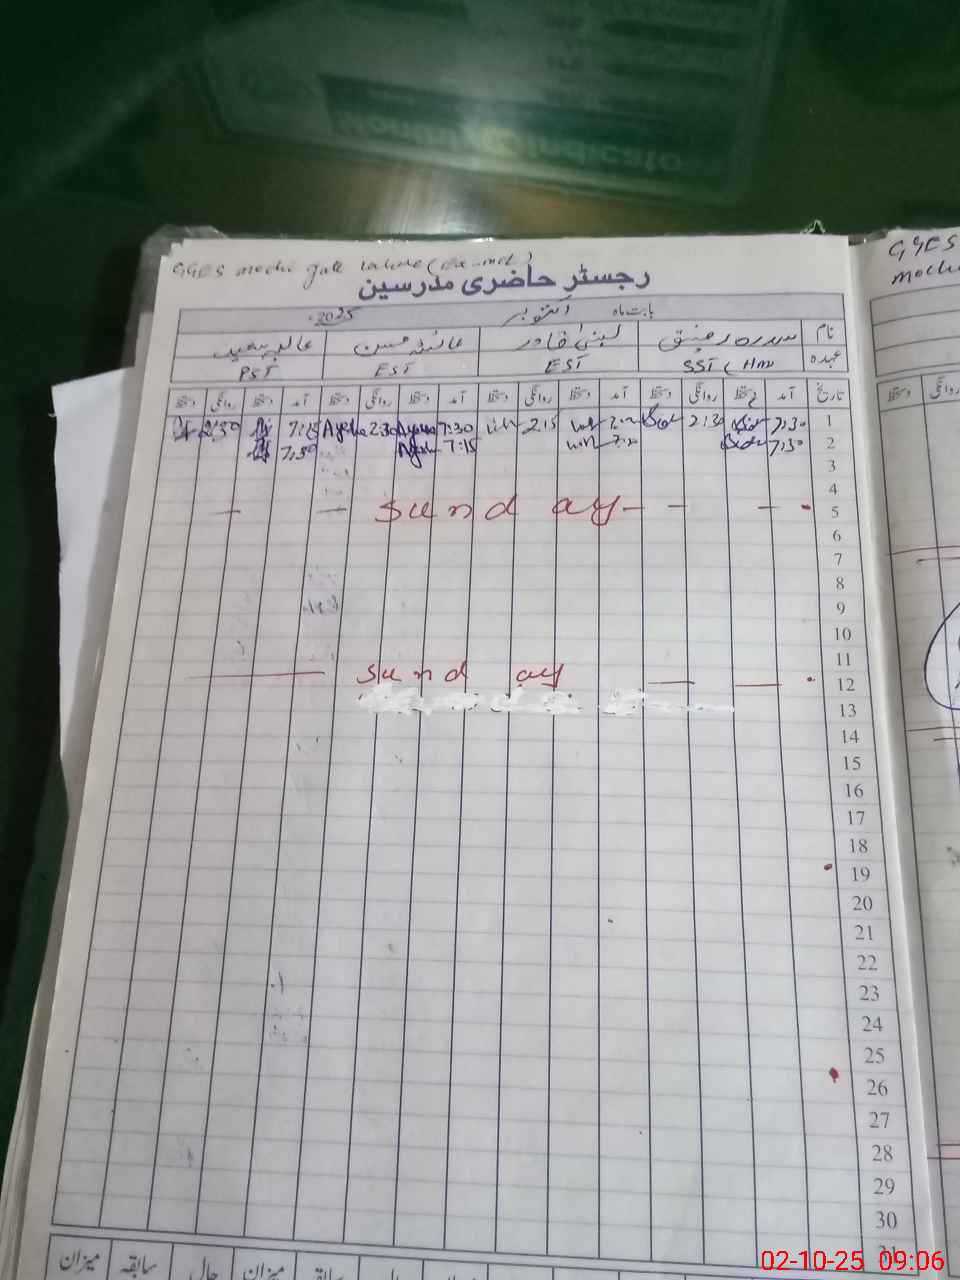 GGES mochi gate lahore (Ex-mcl)
GGES
moch
رجسٹر حاضری مدرسین
بابت ماہ اکتوبر 2025
نام سدرہ رفیق لبنیٰ قادر عائشہ حسن
عہدہ SST (HM EST EST PST
تاریخ آمد دستخط روانگی دستخط آمد دستخط روانگی دستخط آمد دستخط روانگی دستخط آمد دستخط روانگی دستخط
1 7:30 2:30 2:15 7:30 Ayesha 2:30 Ayesha 7:15 2:30
2 7:30 7:15 Ayesha 7:30
3
4
5 Sunday
6
7
8
9
10
11
12 Sunday
13
14
15
16
17
18
19
20
21
22
23
24
25
26
27
28
29
30
31
میزان سابقہ حالی میزان سابقہ
02-10-25 09:06